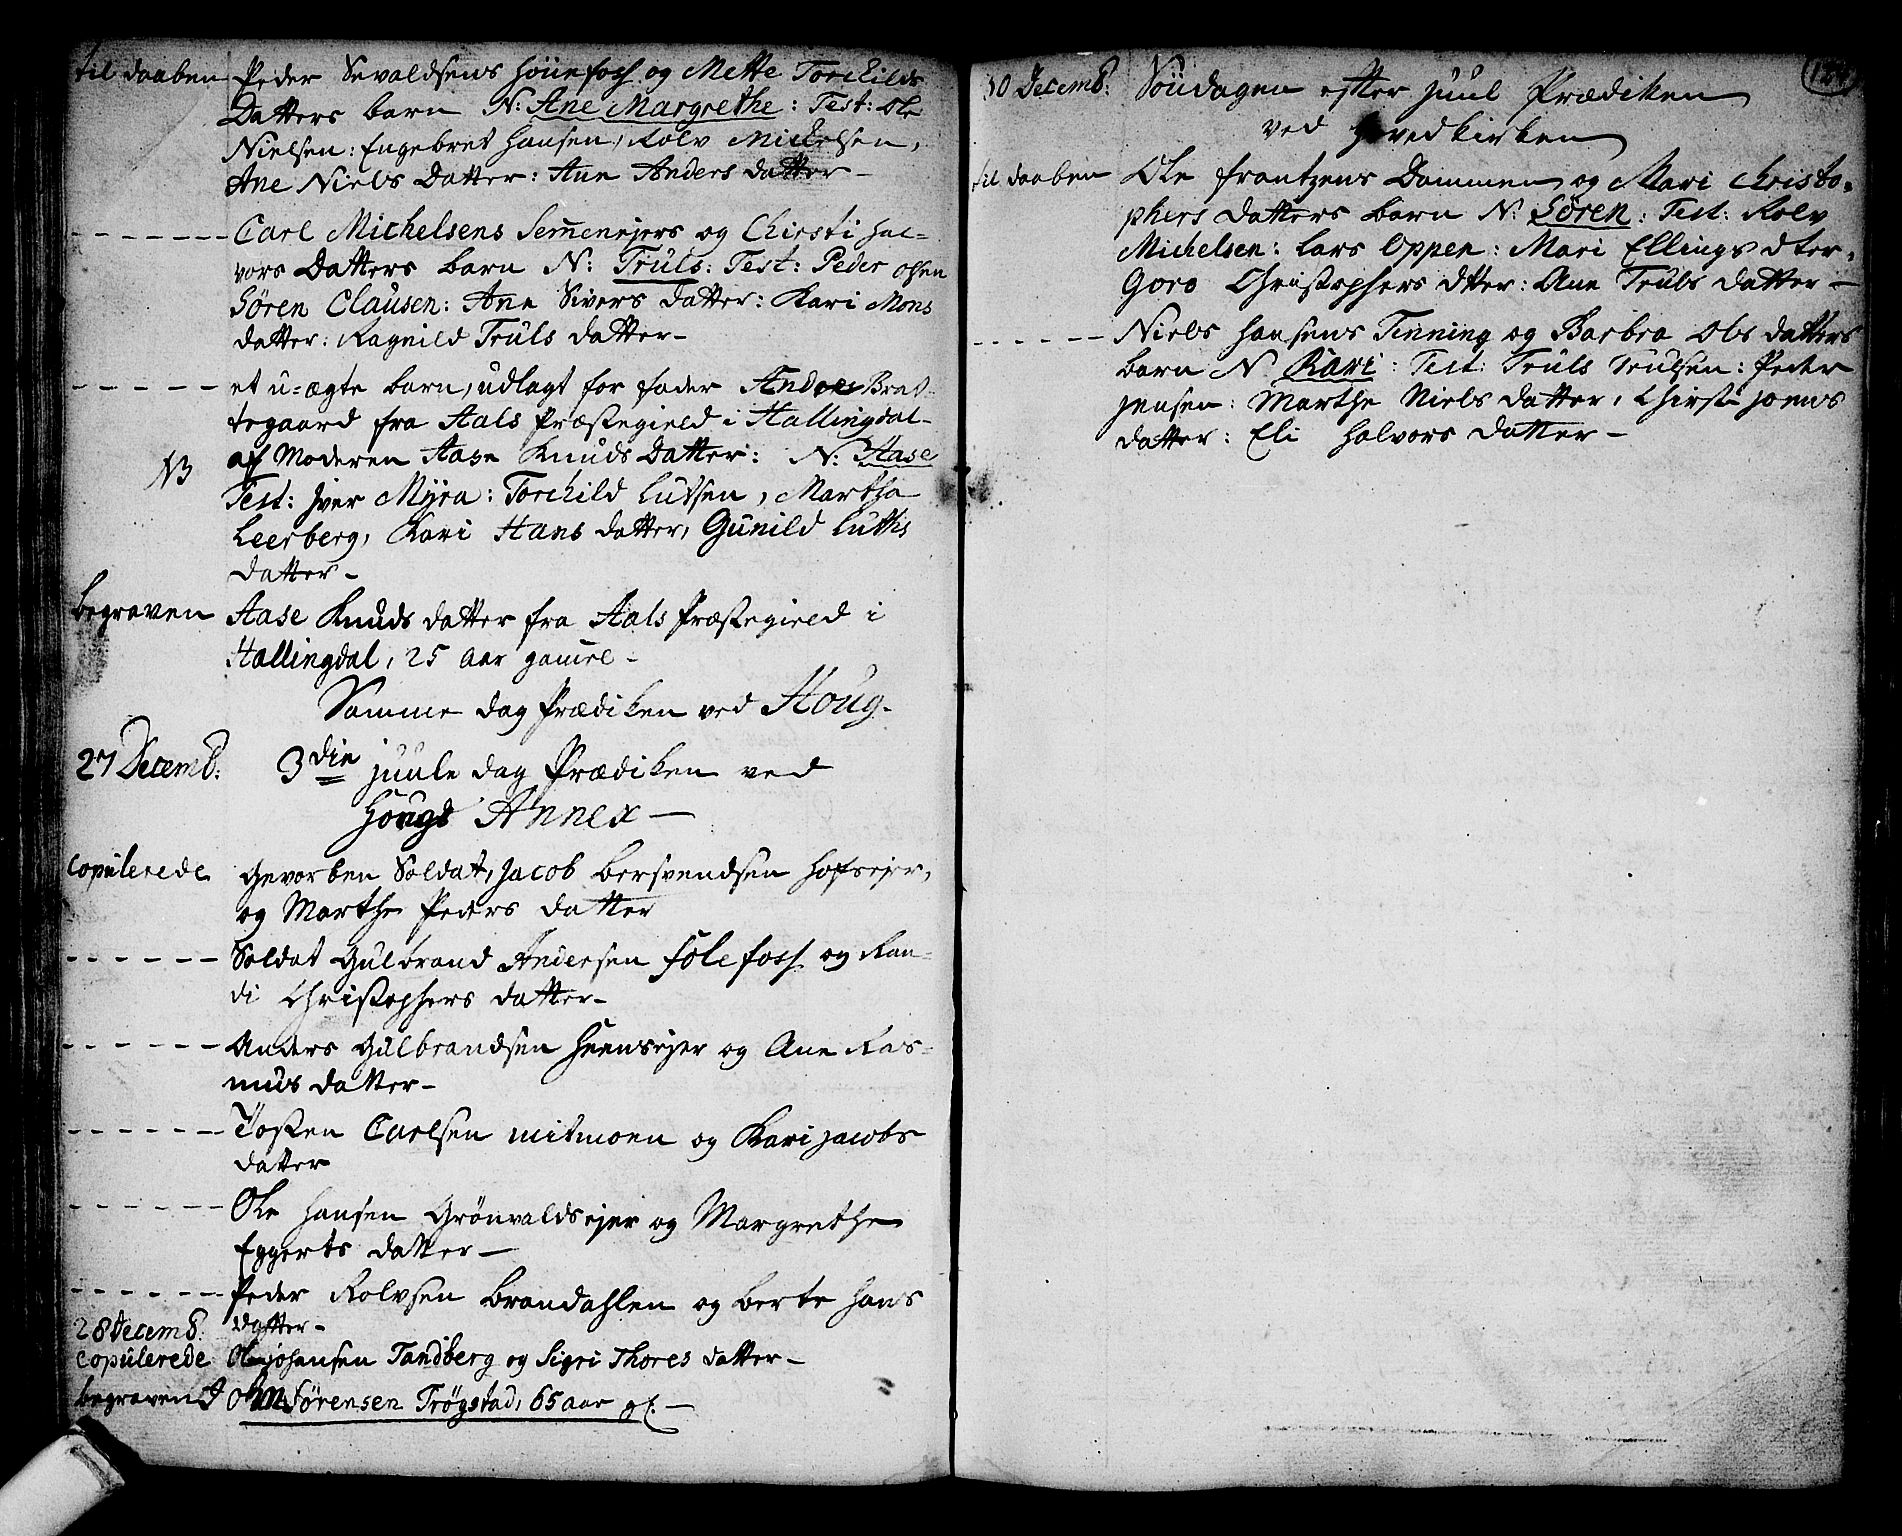 til daaben Peder Sevaldsens Hönefoss og Mette Torchilds
Datters barn N: Ane Margrethe: Test: Ole
Nielsen: Engebret Hansen, Rolv Michelsen,
Ane Niels Datter: Ane Anders datter –
- - - - - - Carl Michelsens Semenejers og Chirsti Hal-
vors Datters barn N: Truls: Test: Peder Olsen
Sören Clausen: Ane Sivers datter: Kari Mons
datter: Ragnild Truls datter –
- - - - - - et u-ægte barn, udlagt for fader Anders Brat-
tegaard fra Aals Præstegield i Hallingdal-
af Moderen Aase Knuds Datter: N: Aase
NB
Test: Iver Myra: Torchild Lutsen, Martha
Leerberg, Kari Hans datter, Gunild Luths
datter –
begraven Aase Knuds datter fra Aals Præstegield i
Hallingdal, 25 aar gamel –
Samme dag Prædiken ved Houg.
27 Decemb: 3die juule dag Prædiken ved
Hougs Annex –
Copulerede Gevorben Soldat, Jacob Bersvendsen Hofsejer,
og Marthe Peders datter
- - - - - - Soldat Gulbrand Andersen Folefoss og Ran-
di Christophers datter –
- - - - - - Anders Gulbrandsen Heensejer og Ane Ras-
mus datter –
- - - - - - Tosten Carlsen Mitmoen og Kari Jacobs
datter
- - - - - - Ole Hansen Grönvaldsejer og Margrethe
Eggerts datter –
- - - - - - Peder Rolvsen Brandahlen og Berte Hans
28 Decemb: datter –
Copulerede Ole Johansen Tandberg og Sigri Thores datter –
begraven John Sörensen Trögstad, 65 aar gl. –
30 Decemb: Söndagen efter Juul Prædiken
ved Hovedkirken
til daaben Ole Frantzens Dammen og Mari Christo-
phers datters barn N: Sören: Test: Rolv
Michelsen: Lars Oppen: Mari Ellings dter:
Goro Christophers dtter: Ane Truls datter –
- - - - - - Niels Hansens Tenning og Barbra Ols datters
barn N Kari: Test: Truls Trulsen: Peder
Jensen: Marthe Niels datter, Chirsti Joens
datter: Eli Halvors datter –